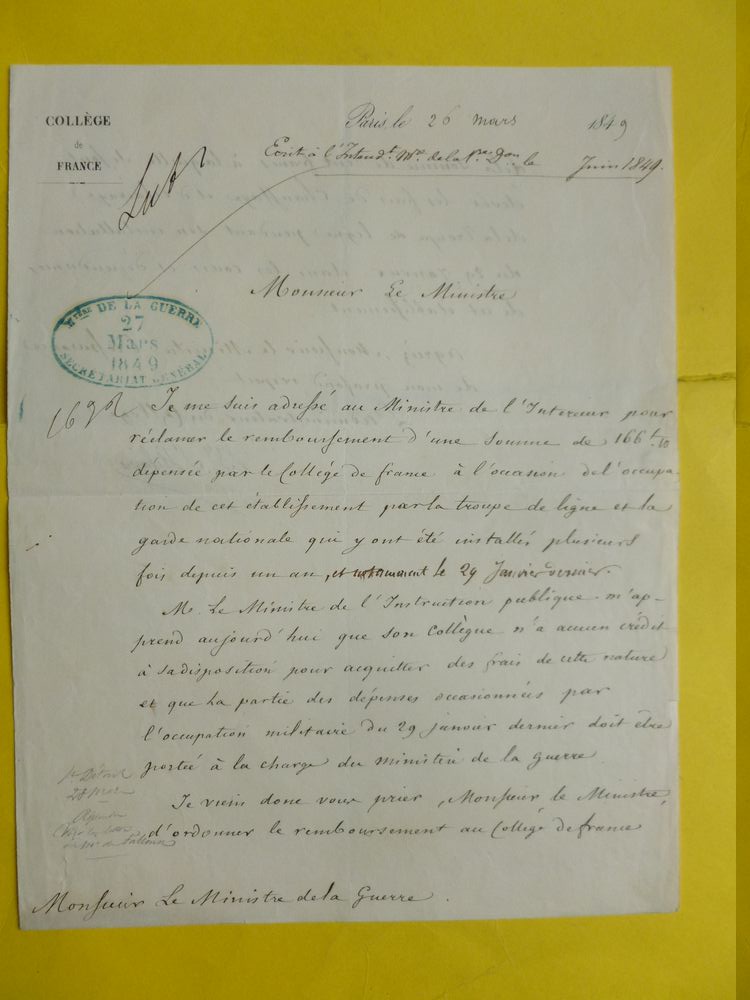 COLLÈGE
de
FRANCE
Paris le 26 mars 1849
Ecrit à l'Intend.t M.re de la 1re Don le Juin 1849.
Monsieur Le Ministre
Mtère DE LA GUERRE
27
Mars
1849
SECRÉTARIAT GÉNÉRAL
Je me suis adressé au Ministre de l'Interieur pour
réclamer le remboursement d'une somme de 166
dépensée par le Collège de france à l'occasion de l'occupa-
tion de cet établissement par la troupe de ligne et la
garde nationale qui y ont été installés plusieurs
fois depuis un an, et notamment le 29 Janvier dernier.
M. Le Ministre de l'Instruction publique m'ap-
prend aujourd'hui que son Collègue n'a aucun crédit
à sa disposition pour acquitter des frais de cette nature
et que la partie des dépenses occasionnées par
l'occupation militaire du 29 janvier dernier doit être
portée à la charge du ministère de la guerre
Je viens donc vous prier, Monsieur le Ministre,
d'ordonner le remboursement au Collège de france
Monsieur Le Ministre de la Guerre.